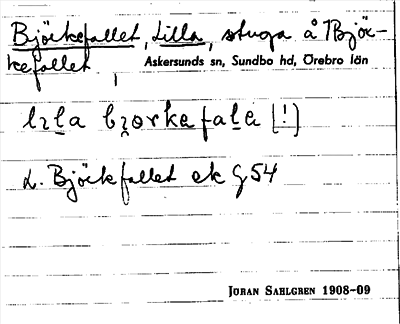 Björkefallet, Lilla, stuga å 1 Björ-
kefallet
Askersunds sn, Sundbo hd, Örebro län
lɩla bɩ̯orkefala [!]
L. Björkfallet ek G 54
JÖRAN SAHLGREN 1908-09